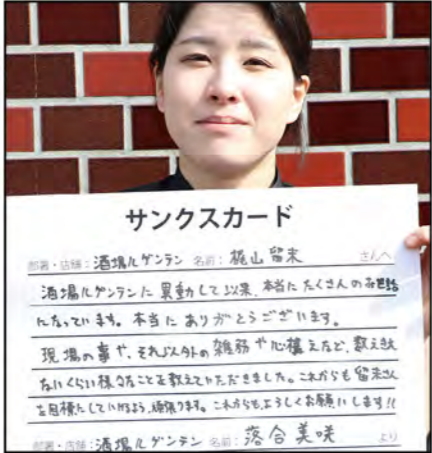 サンクスカード
部署・店舗:酒場ルゲンテン 名前:梶山留未 さんへ
酒場ルゲンテンに異動して以来、本当にたくさんのお世話
になっています。本当にありがとうございます。
現場の事や、それ以外の雑務や心構えなど、数えきれ
ないくらい様々なことを教えていただきました。これからも留未さん
を目標にしていけるよう、頑張ります。これからも、よろしくお願いします!!
部署・店舗:酒場ルゲンテン 名前:落合美咲 より